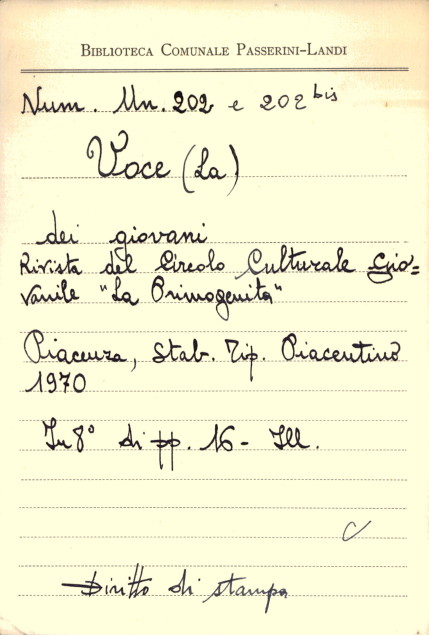 BIBLIOTECA COMUNALE PASSERINI-LANDI
Num. Un. 202 e 202 bis
Voce (La)
dei giovani
Rivista del Circolo Culturale Gio=
vanile "La Primogenita"
Piacenza, Stab. Tip. Piacentino
1970
In 8° di pp. 16 - Ill.
Diritto di stampa